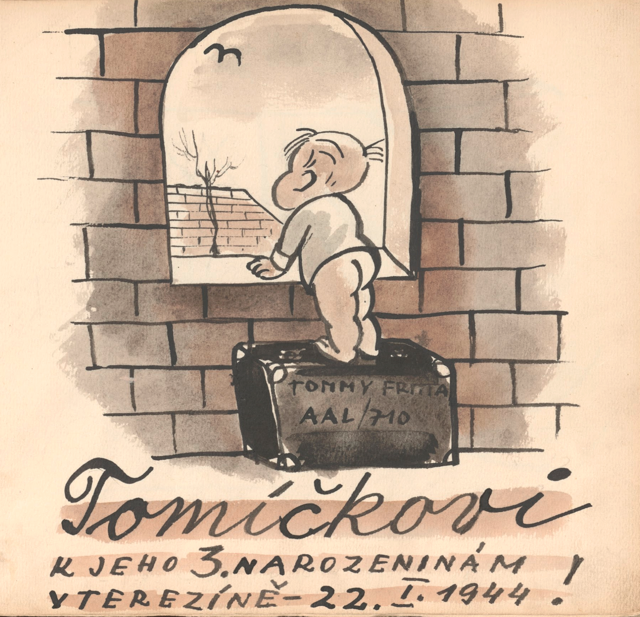 TOMMY FRITTA
AAL/710
Tomíčkovi
K JEHO 3. NAROZENINÁM
V TEREZÍNĚ – 22. I. 1944 !